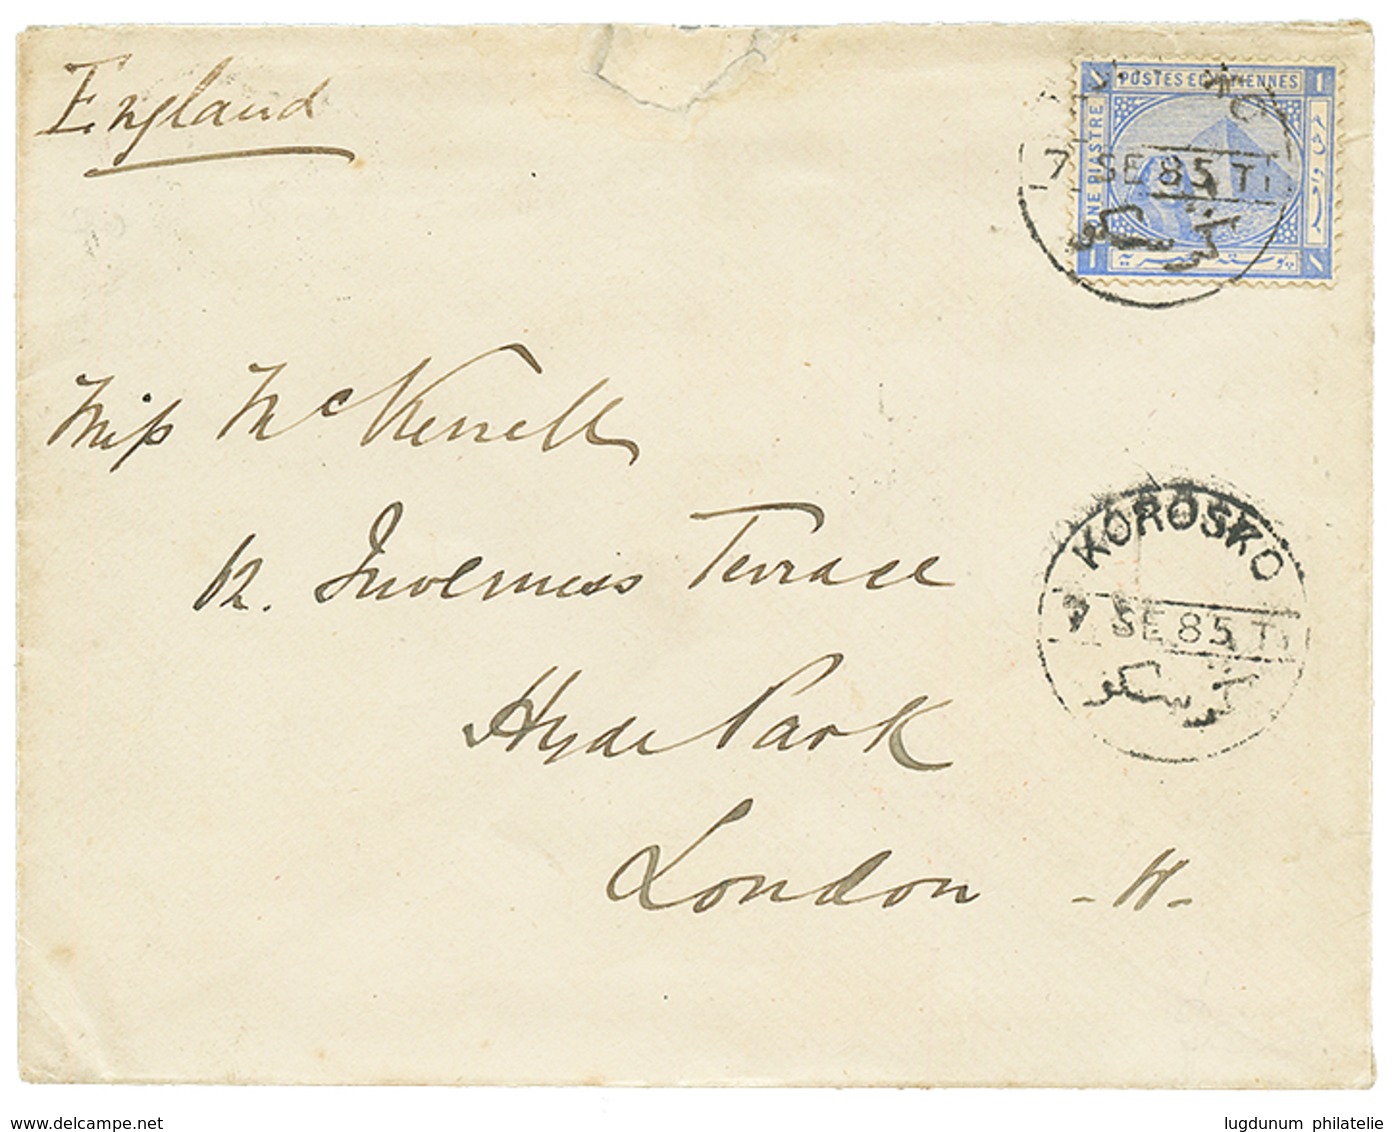 England
POSTES EGYPTIENNES
UNE PIASTRE
1
7 SE 85 T1
Miss McKerrell
12. Inverness Terrace
Hyde Park
London - W -
KOROSKO
7 SE 85 T1
كورسكو
www.delcampe.net
lugdunum philatelie